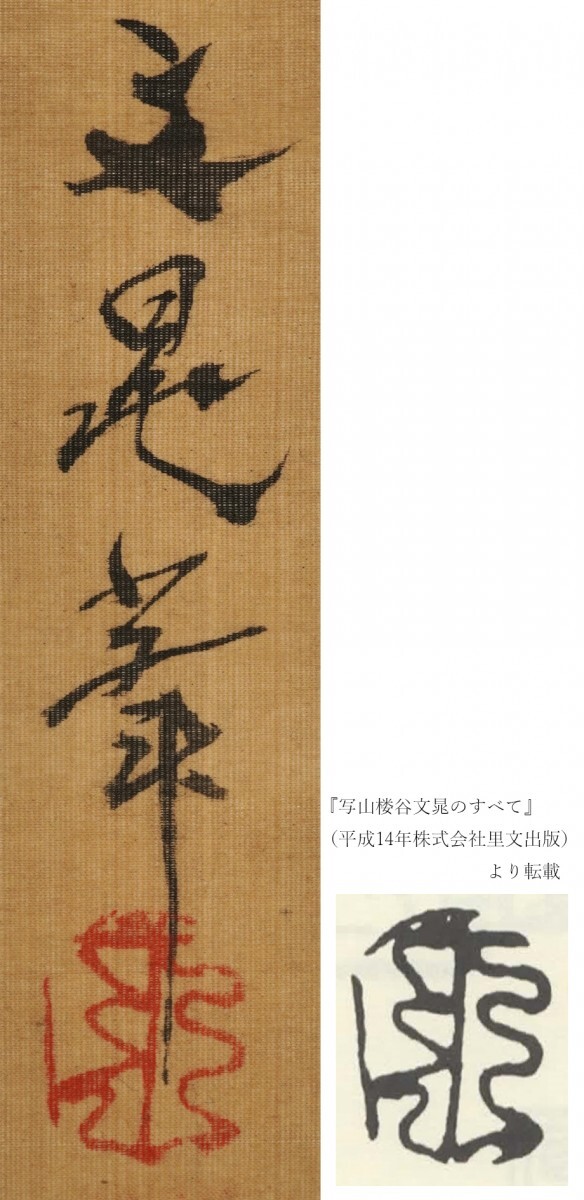 文晁筆
『写山楼谷文晁のすべて』
（平成14年株式会社里文出版）
より転載